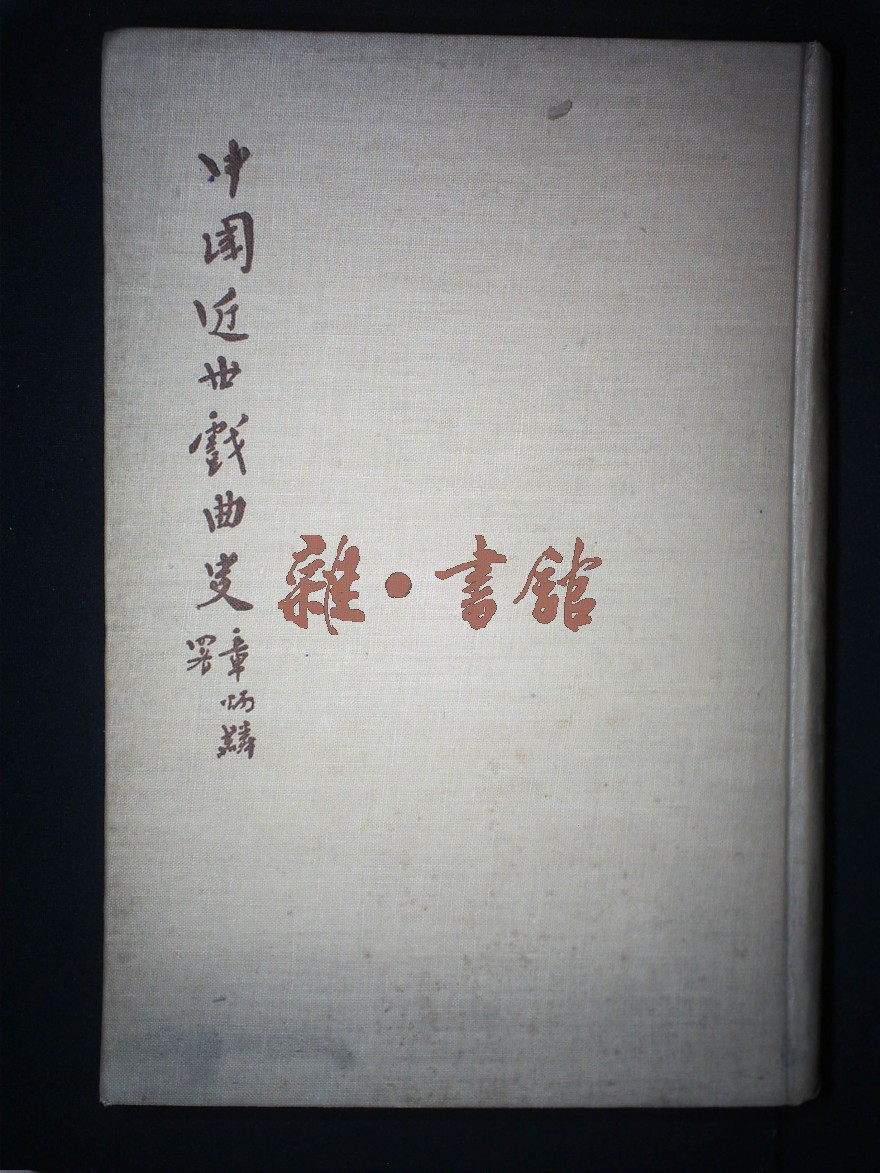 中國近世戲曲史
章炳麟
署
雜·書館